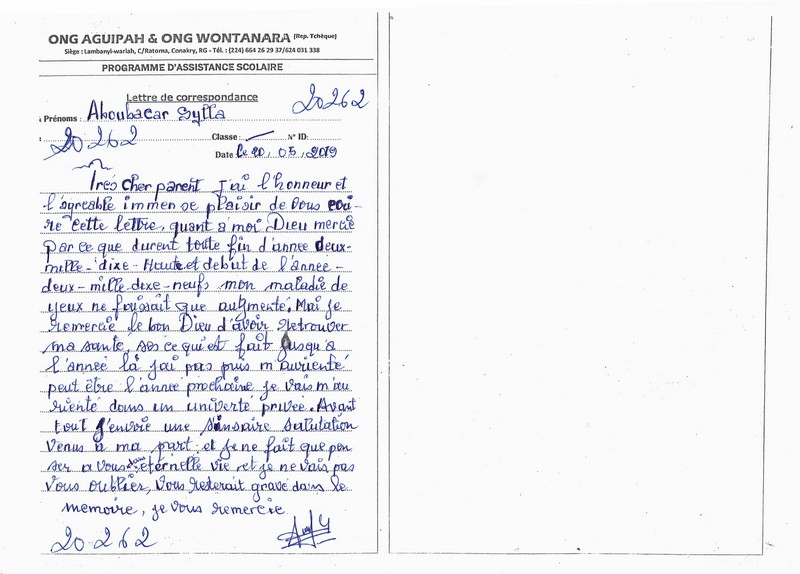 ONG AGUIPAH & ONG WONTANARA (Rep. Tchèque)
Siège : Lambanyi-wariah, C/Ratoma, Conakry, RG - Tél. : (224) 664 26 29 37/624 031 338
PROGRAMME D'ASSISTANCE SCOLAIRE
Lettre de correspondance
20262
Prénoms : Aboubacar Sylla
20262
Classe : N° ID:
Date le 20, 05, 2019
Très cher parent J'ai l'honneur et
l'agreable immense plaisir de vous ecri-
re cette lettre, quant à moi Dieu mercie
par ce que durent toute fin d'année deux-
mille-dixe-Huite et debut de l'année-
deux-mille dixe-neufs mon maladie de
yeux ne faissait que augmenté. Mai je
remercie le bon Dieu d'avoir retrouver
ma santé, ses ce qui est fait jusqu'a
l'année là j'ai pas puis m'aurienté
peut être l'année prochaine je vais m'au
rienté dans un univerté privée. Avant
tout j'envoie une sinsaire salutation
venus à ma part, et je ne fait que pen
ser a vous dans eternelle vie et je ne vais pas
vous oublier, vous resterait gravé dans le
memoire, je vous remercie
20262